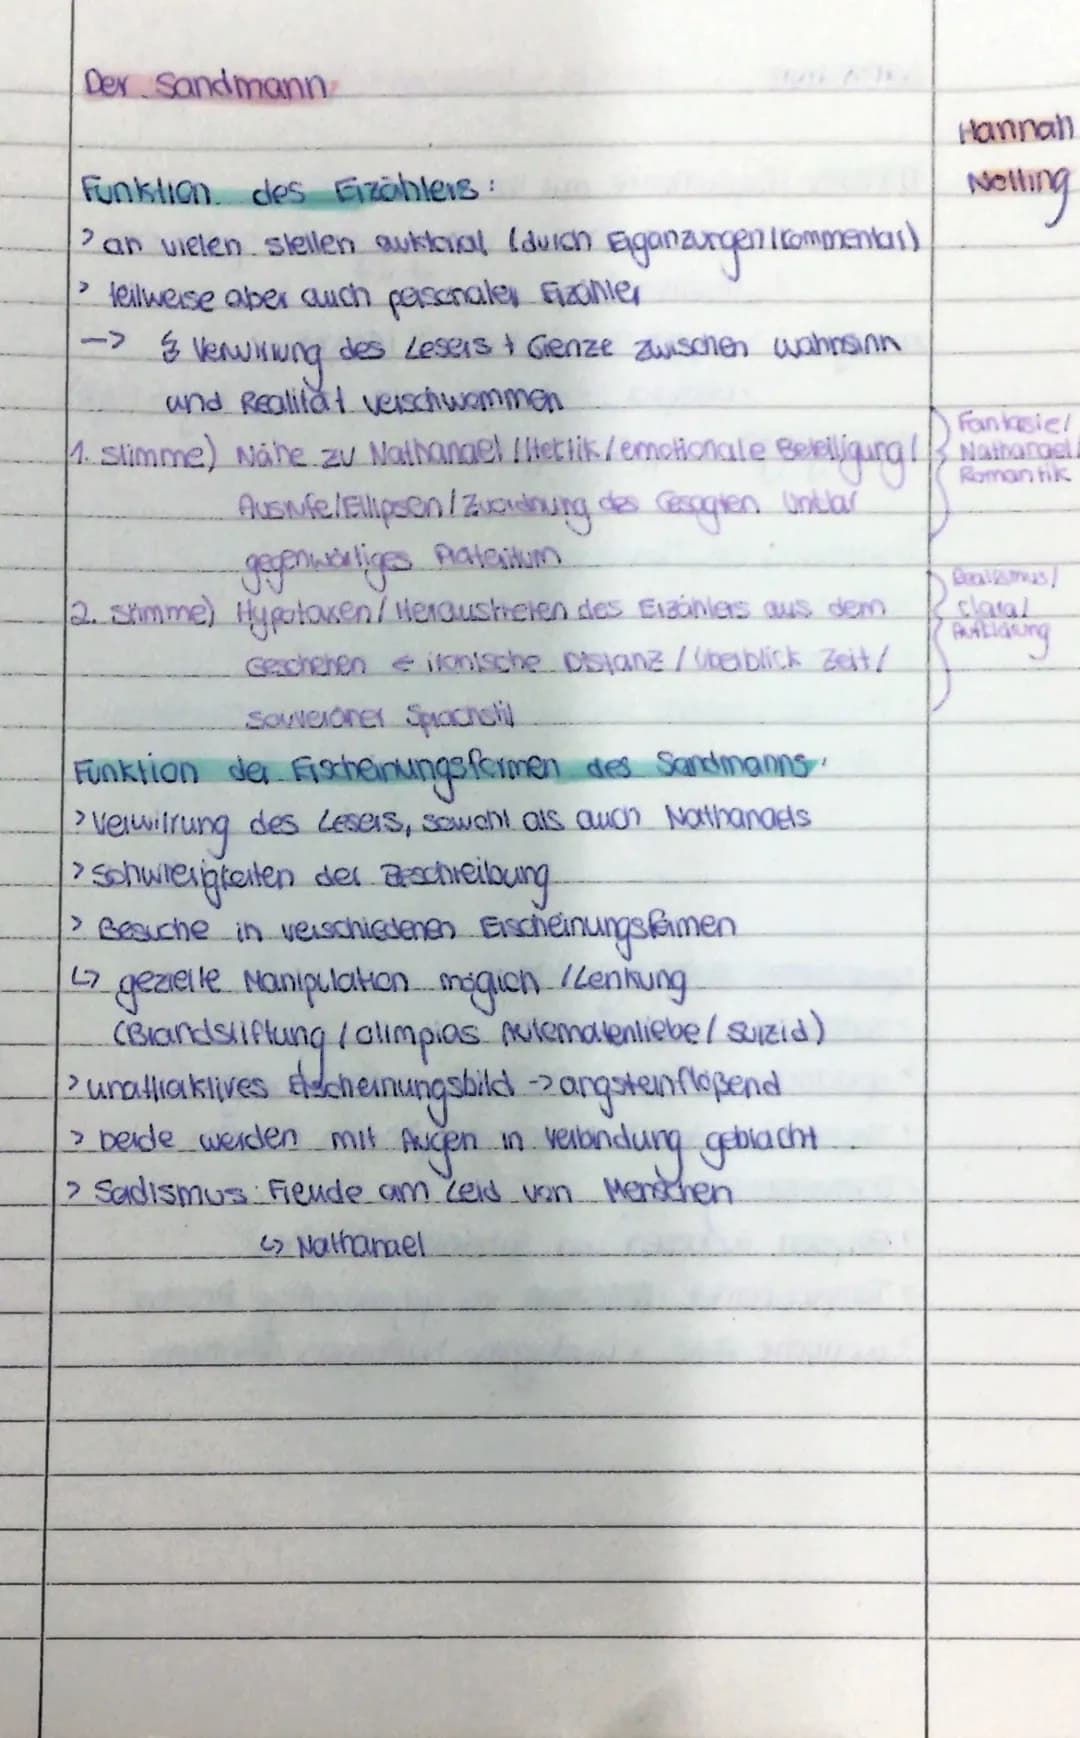 Der Sandmann
Hannah
Nolling
Funktion des Erzählers:
> an vielen Stellen auktorial (durch Erganzungen/Kommentar)
> teilweise aber auch personaler Erzähler
-> Verwirrung des Lesers + Grenze zwischen Wahnsinn
und Realität verschwommen
1. Stimme) Nähe zu Nathanael / Hektik / emotionale Beteiligung /
Ausrufe / Ellipsen / Zuordnung des Gesagten unklar
gegenwärtiges Präteritum
Fantasie/
Nathanael/
Romantik
2. Stimme) Hypotaxen / Heraustreten des Erzählers aus dem
Geschehen ironische Distanz / Überblick Zeit /
souveräner Sprachstil
Realismus/
Clara/
Aufklärung
Funktion der Erscheinungsformen des Sandmanns:
> Verwirrung des Lesers, sowohl als auch Nathanaels
> Schwierigkeiten der Beschreibung
> Besuche in verschiedenen Erscheinungsformen
↳ gezielle Manipulation möglich / Lenkung
(Brandstiftung / Olimpias Automatenliebe / Suizid)
> unattraktives Erscheinungsbild -> angsteinflößend
> beide werden mit Augen in Verbindung gebracht
> Sadismus: Freude am Leid von Menschen
↳ Nathanael